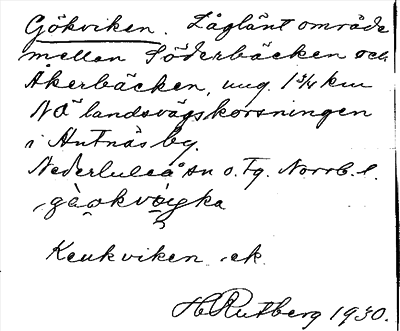 Gökviken. Låglänt område
mellan Söderbäcken och
Åkerbäcken, ung. 1 3/4 km
NÖ landsvägskorsningen
i Antnäs by.
Nederluleå sn o. Tg. Norrb. l.
Keukviken ek.
H Rutberg 1930.